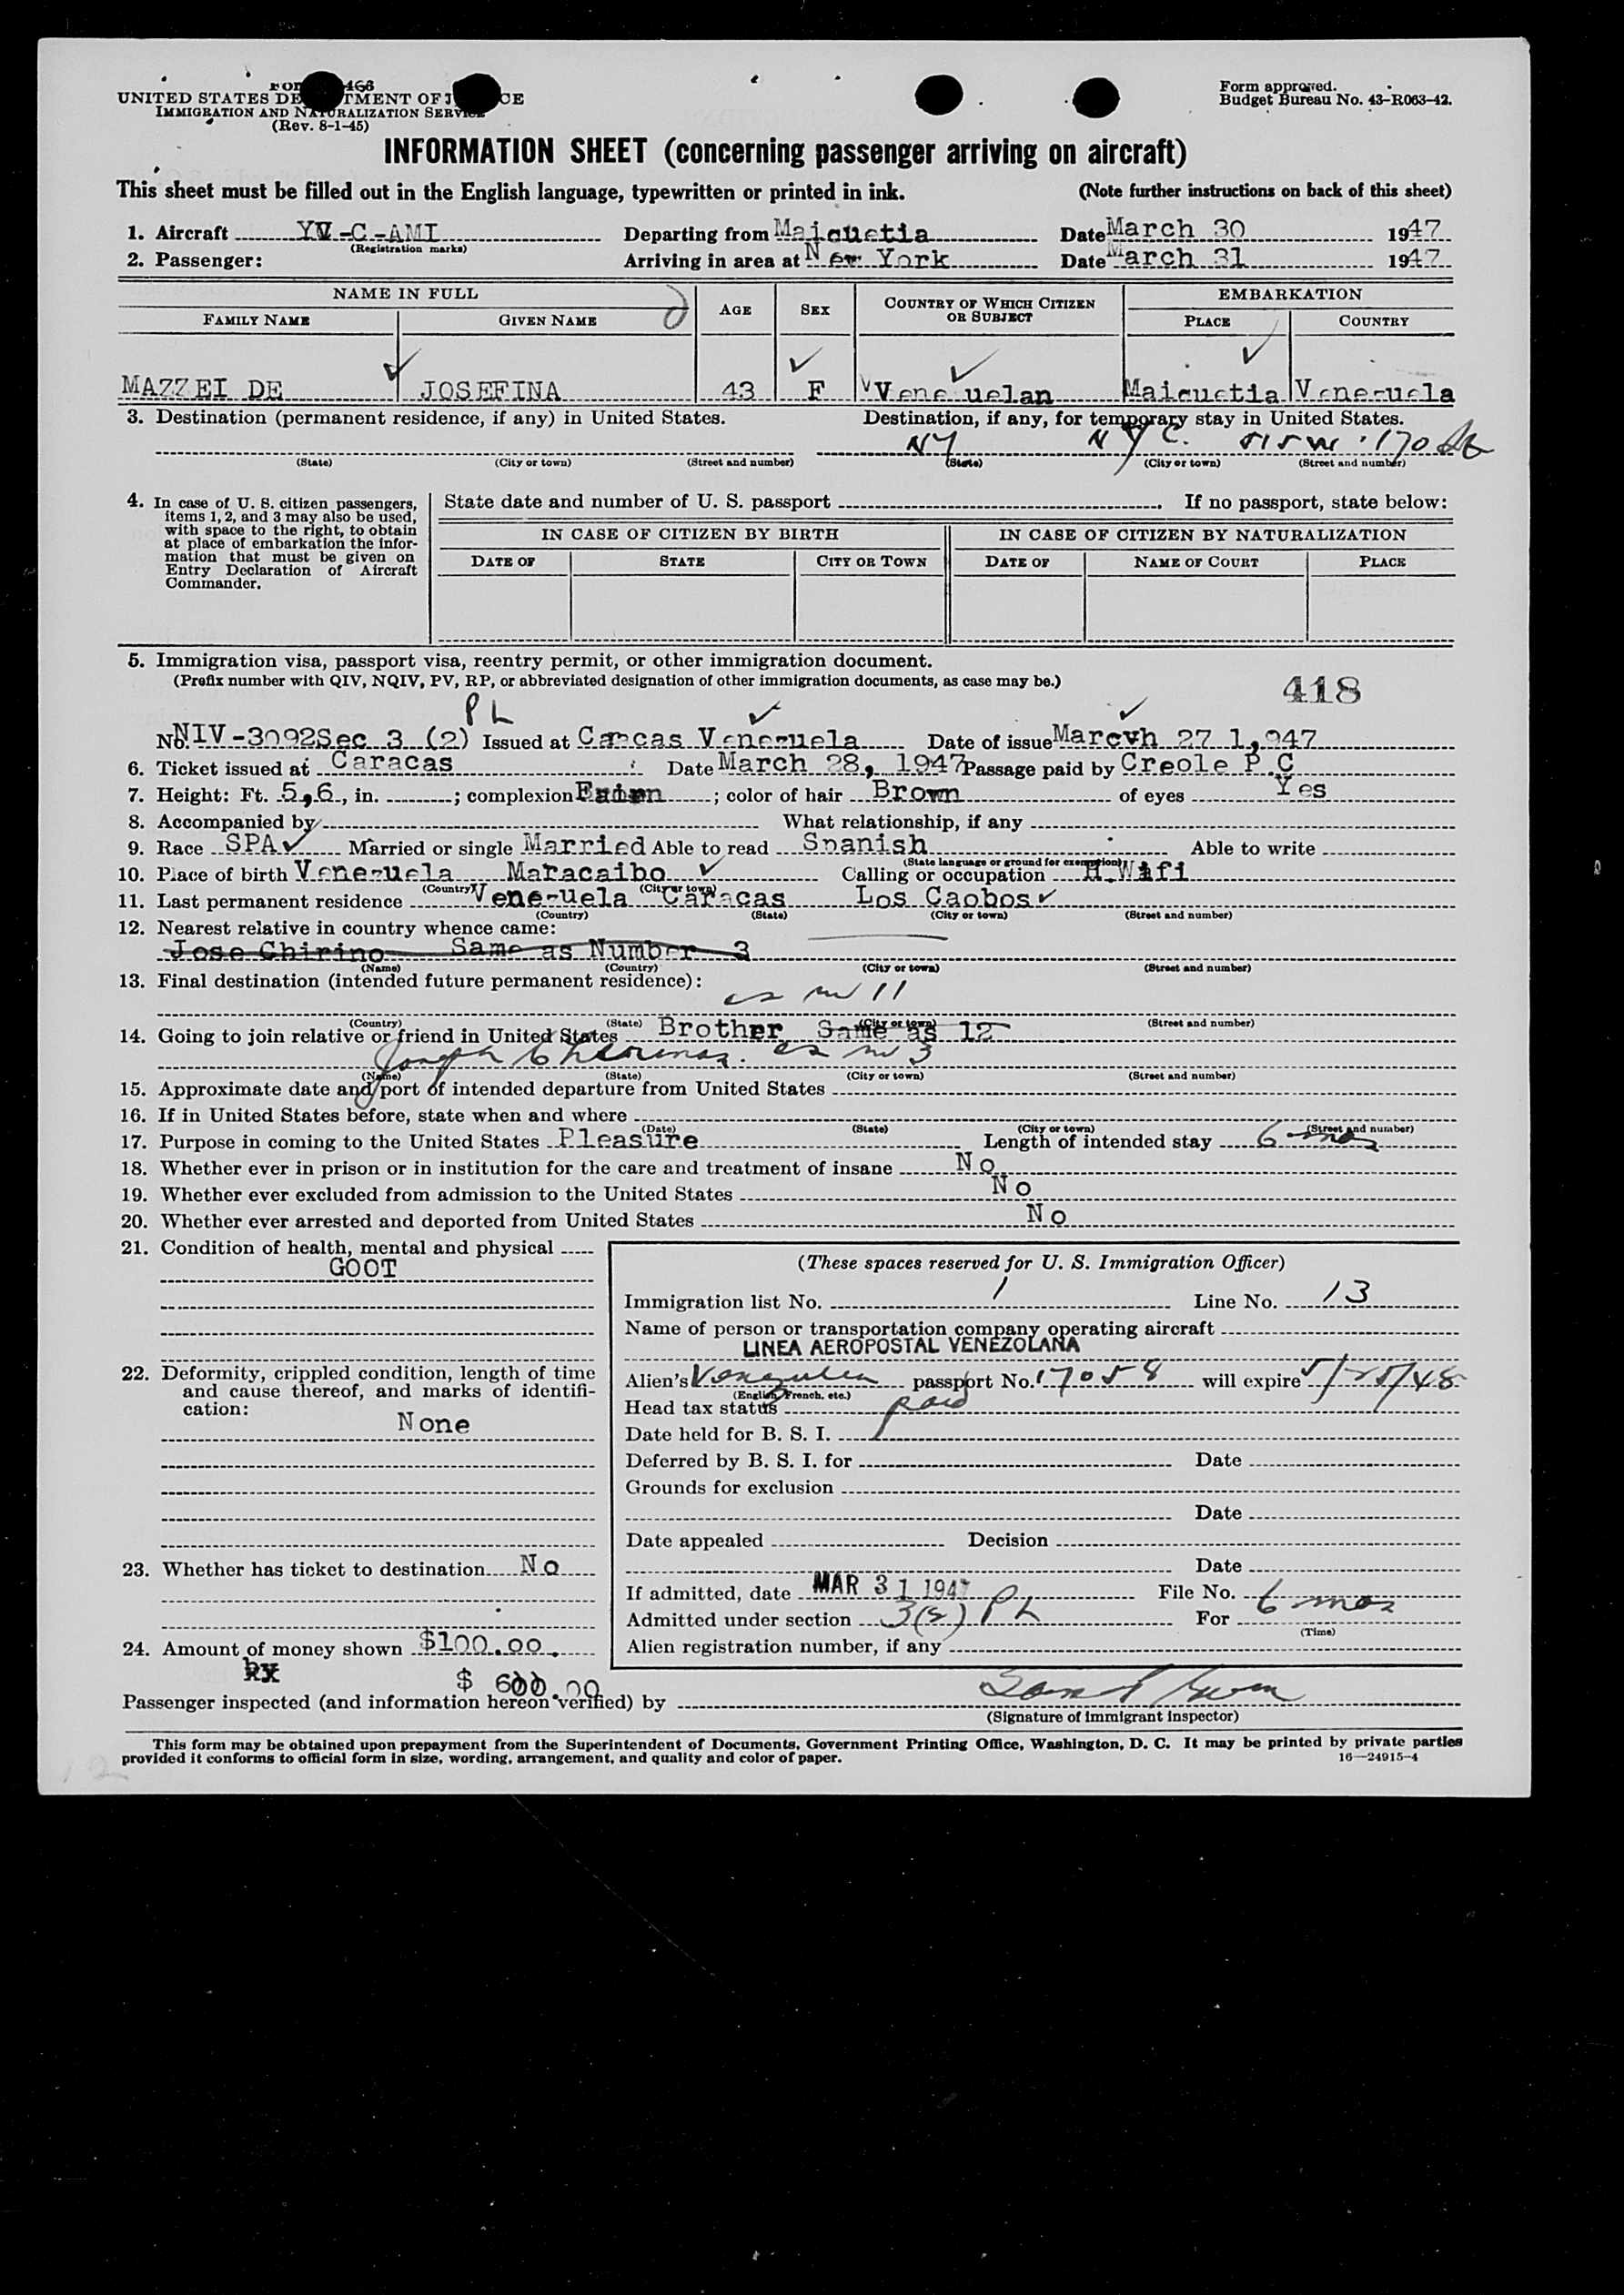 UNITED STATES DE TMENT OF J CE
IMMIGRATION AND NATURALIZATION SERVICE
(Rev. 8-1-45)
Form approved.
Budget Bureau No. 43-R063-42.
INFORMATION SHEET (concerning passenger arriving on aircraft)
This sheet must be filled out in the English language, typewritten or printed in ink. (Note further instructions on back of this sheet)
1. Aircraft YV-C-AMI Departing from Maiquetia Date March 30 1947
(Registration marks)
2. Passenger: Arriving in area at New York Date March 31 1947
NAME IN FULL AGE SEX COUNTRY OF WHICH CITIZEN OR SUBJECT EMBARKATION
FAMILY NAME GIVEN NAME PLACE COUNTRY
MAZZEI DE JOSEFINA 43 F Venezuelan Maiquetia Venezuela
3. Destination (permanent residence, if any) in United States. Destination, if any, for temporary stay in United States.
NY N Y C. 515 W. 170 St
(State) (City or town) (Street and number) (State) (City or town) (Street and number)
4. In case of U. S. citizen passengers, items 1, 2, and 3 may also be used, with space to the right, to obtain at place of embarkation the information that must be given on Entry Declaration of Aircraft Commander.
State date and number of U. S. passport . If no passport, state below:
IN CASE OF CITIZEN BY BIRTH IN CASE OF CITIZEN BY NATURALIZATION
DATE OF STATE CITY OR TOWN DATE OF NAME OF COURT PLACE
5. Immigration visa, passport visa, reentry permit, or other immigration document.
(Prefix number with QIV, NQIV, PV, RP, or abbreviated designation of other immigration documents, as case may be.)
418
PL
No. NIV-3092 Sec 3 (2) Issued at Caracas Venezuela Date of issue Marcvh 27 1,947
6. Ticket issued at Caracas Date March 28, 1947 Passage paid by Creole P.C
7. Height: Ft. 5,6, in. ; complexion ; color of hair Brown of eyes Yes
8. Accompanied by What relationship, if any
9. Race SPA Married or single Married Able to read Spanish Able to write
(State language or ground for exemption)
10. Place of birth Venezuela Maracaibo Calling or occupation H.Wifi
(Country) (City or town)
11. Last permanent residence Venezuela Caracas Los Caobos
(Country) (State) (City or town) (Street and number)
12. Nearest relative in country whence came:
Jose Chirino Same as Number 3
(Name) (Country) (City or town) (Street and number)
13. Final destination (intended future permanent residence):
as in 11
(Country) (State) (City or town) (Street and number)
14. Going to join relative or friend in United States Brother Same as 12
Joseph as in 3
(Name) (State) (City or town) (Street and number)
15. Approximate date and port of intended departure from United States
16. If in United States before, state when and where
(Date) (State) (City or town) (Street and number)
17. Purpose in coming to the United States Pleasure Length of intended stay 6 mos
18. Whether ever in prison or in institution for the care and treatment of insane No
19. Whether ever excluded from admission to the United States No
20. Whether ever arrested and deported from United States No
21. Condition of health, mental and physical
GOOT
22. Deformity, crippled condition, length of time and cause thereof, and marks of identification:
None
23. Whether has ticket to destination No
24. Amount of money shown $100.00.
$ 600 00
(These spaces reserved for U. S. Immigration Officer)
Immigration list No. 1 Line No. 13
Name of person or transportation company operating aircraft
LINEA AEROPOSTAL VENEZOLANA
Alien's Venezuelan passport No. 17058 will expire 5/25/48
(English, French, etc.)
Head tax status paid
Date held for B. S. I.
Deferred by B. S. I. for Date
Grounds for exclusion
Date
Date appealed Decision
Date
If admitted, date MAR 31 1947 File No.
Admitted under section 3(2) PL For 6 mos
(Time)
Alien registration number, if any
Passenger inspected (and information hereon verified) by
(Signature of immigrant inspector)
This form may be obtained upon prepayment from the Superintendent of Documents, Government Printing Office, Washington, D. C. It may be printed by private parties
provided it conforms to official form in size, wording, arrangement, and quality and color of paper. 16—24915-4